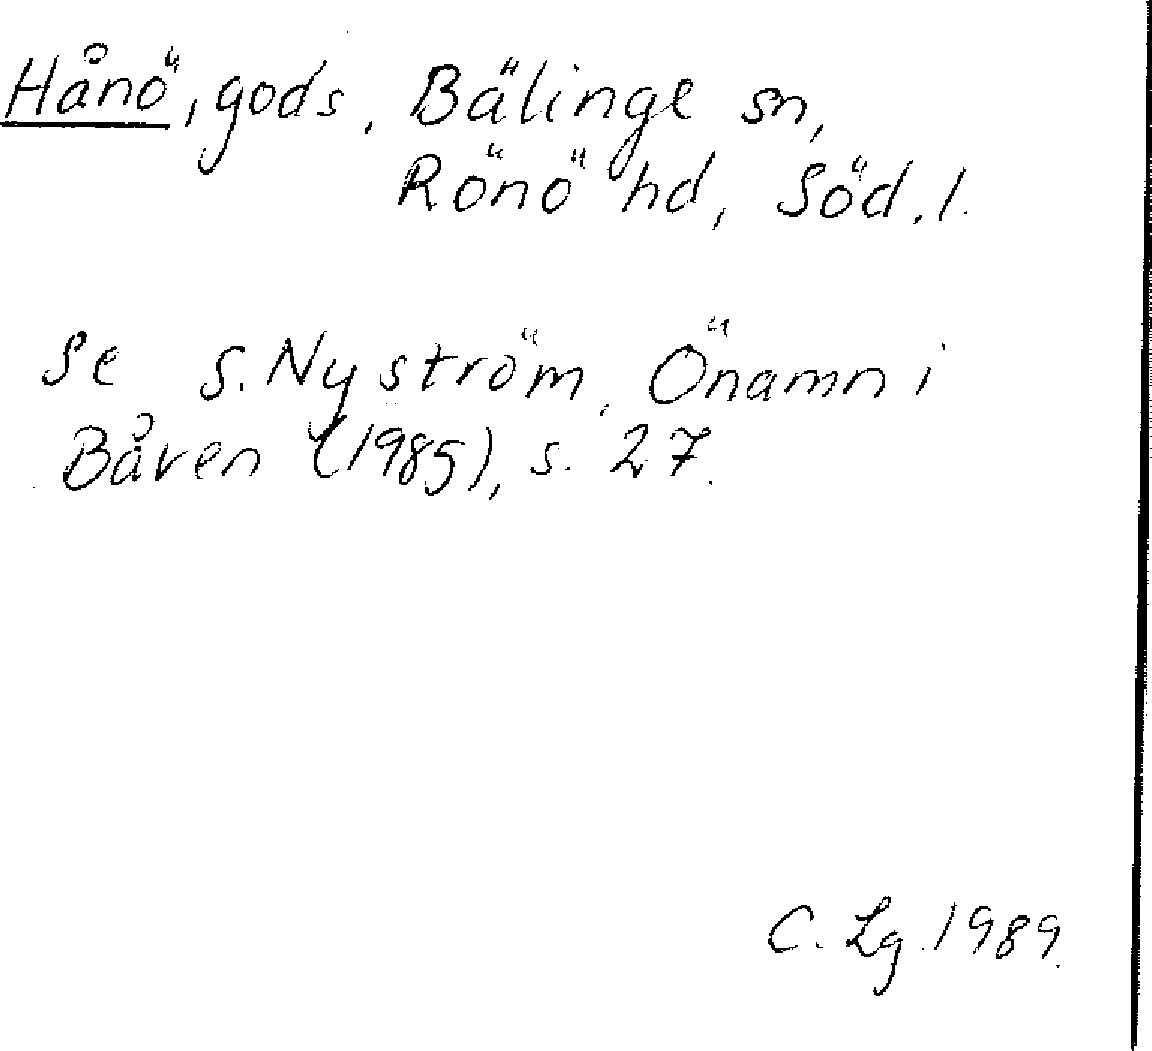 Hånö, gods, Bälinge sn,
Rönö hd, Söd.l.
Se S. Nyström, Önamn i
Båven (1985), s. 27.
C. Lg. 1989.